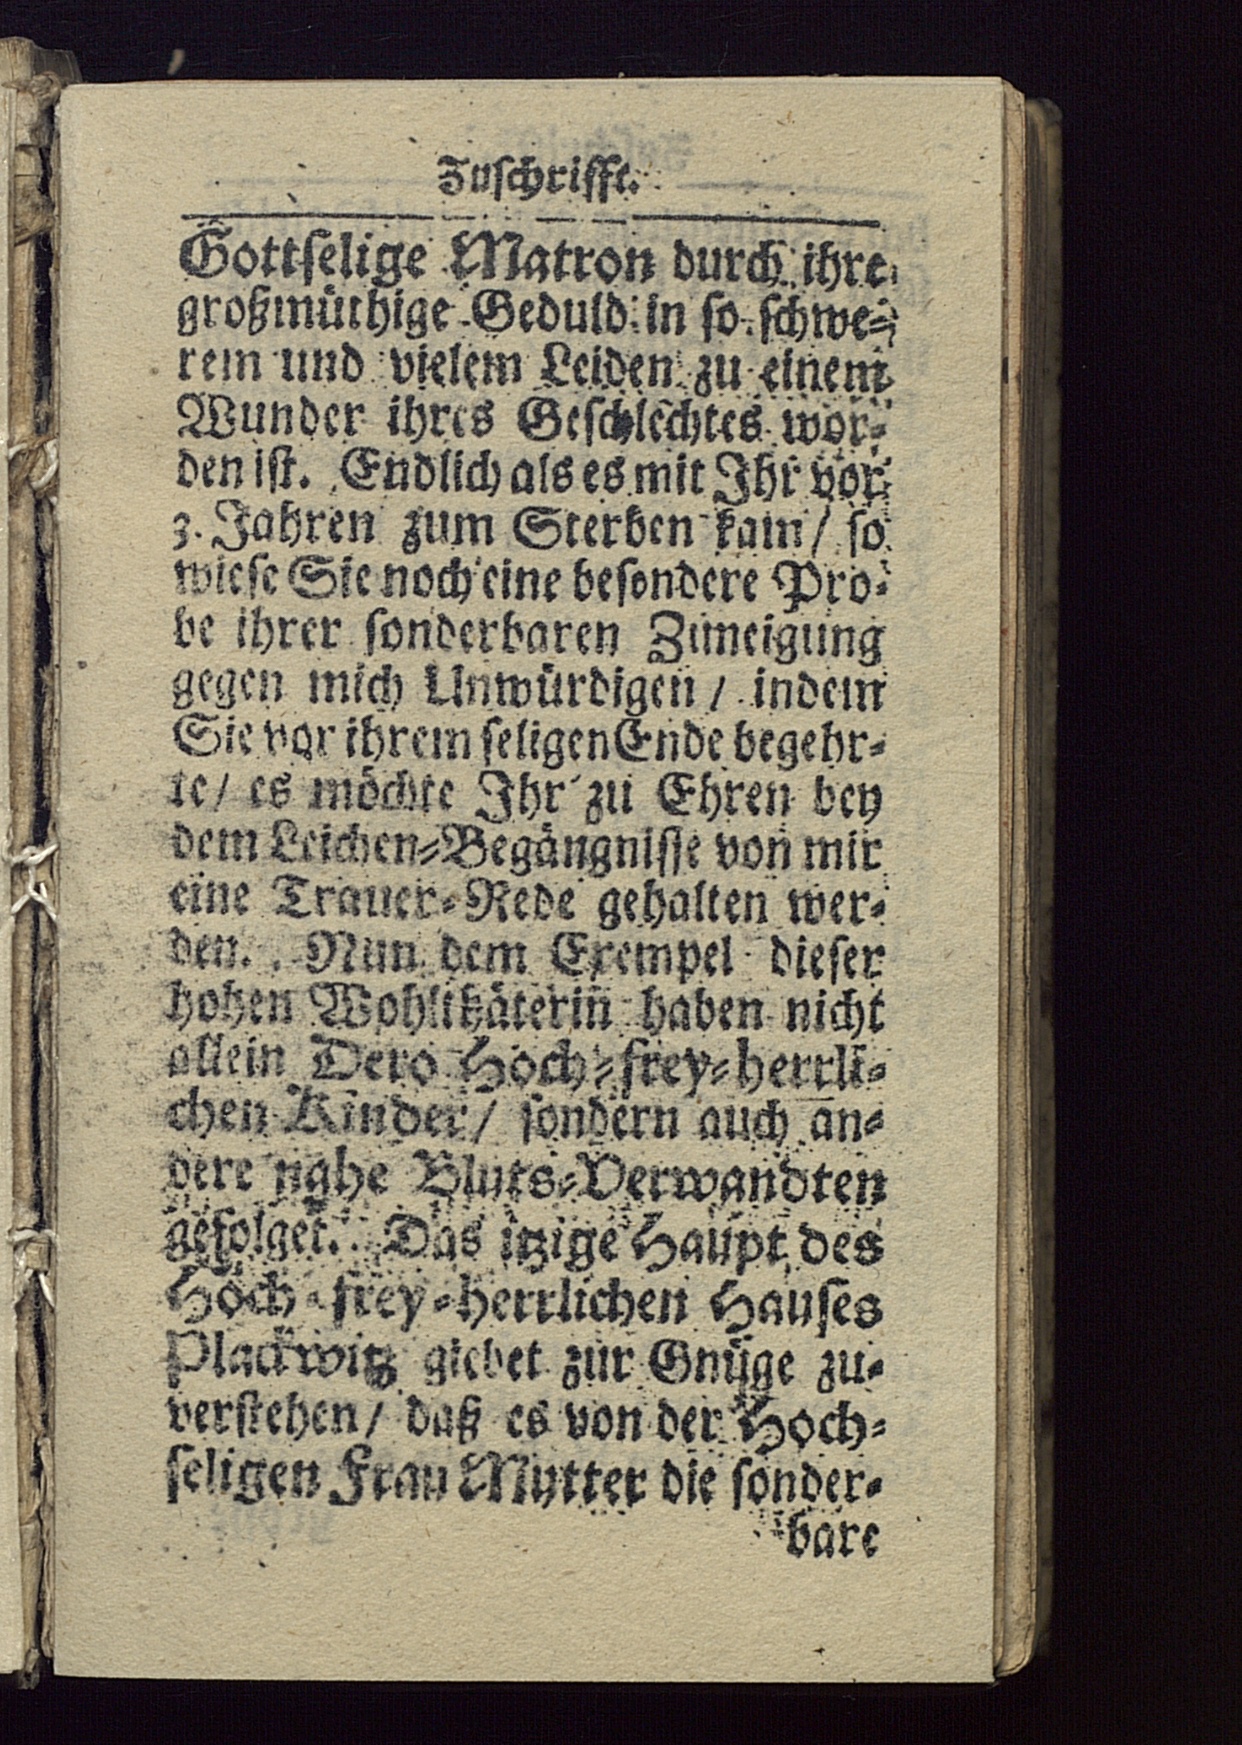 Zuschrifft.
Gottselige Matron durch ihre
großmüthige Geduld in so schwe⸗
rem und vielem Leiden zu einem
Wunder ihres Geschlechtes wor⸗
den ist. Endlich als es mit Ihr vor
3. Jahren zum Sterben kam / so
wiese Sie noch eine besondere Pro⸗
be ihrer sonderbaren Zuneigung
gegen mich Unwürdigen / indem
Sie vor ihrem seligen Ende begehr⸗
te / es möchte Ihr zu Ehren bey
dem Leichen⸗Begängnisse von mir
eine Trauer⸗Rede gehalten wer⸗
den. Nun dem Exempel dieser
hohen Wohlthäterin haben nicht
allein Dero Hoch⸗frey⸗herrli⸗
chen Kinder / sondern auch an⸗
dere nahe Bluts⸗Verwandten
gefolget. Das itzige Haupt des
Hoch⸗frey⸗herrlichen Hauses
Plackwitz giebet zur Gnüge zu⸗
verstehen / daß es von der Hoch⸗
seligen Frau Mutter die sonder⸗
bare